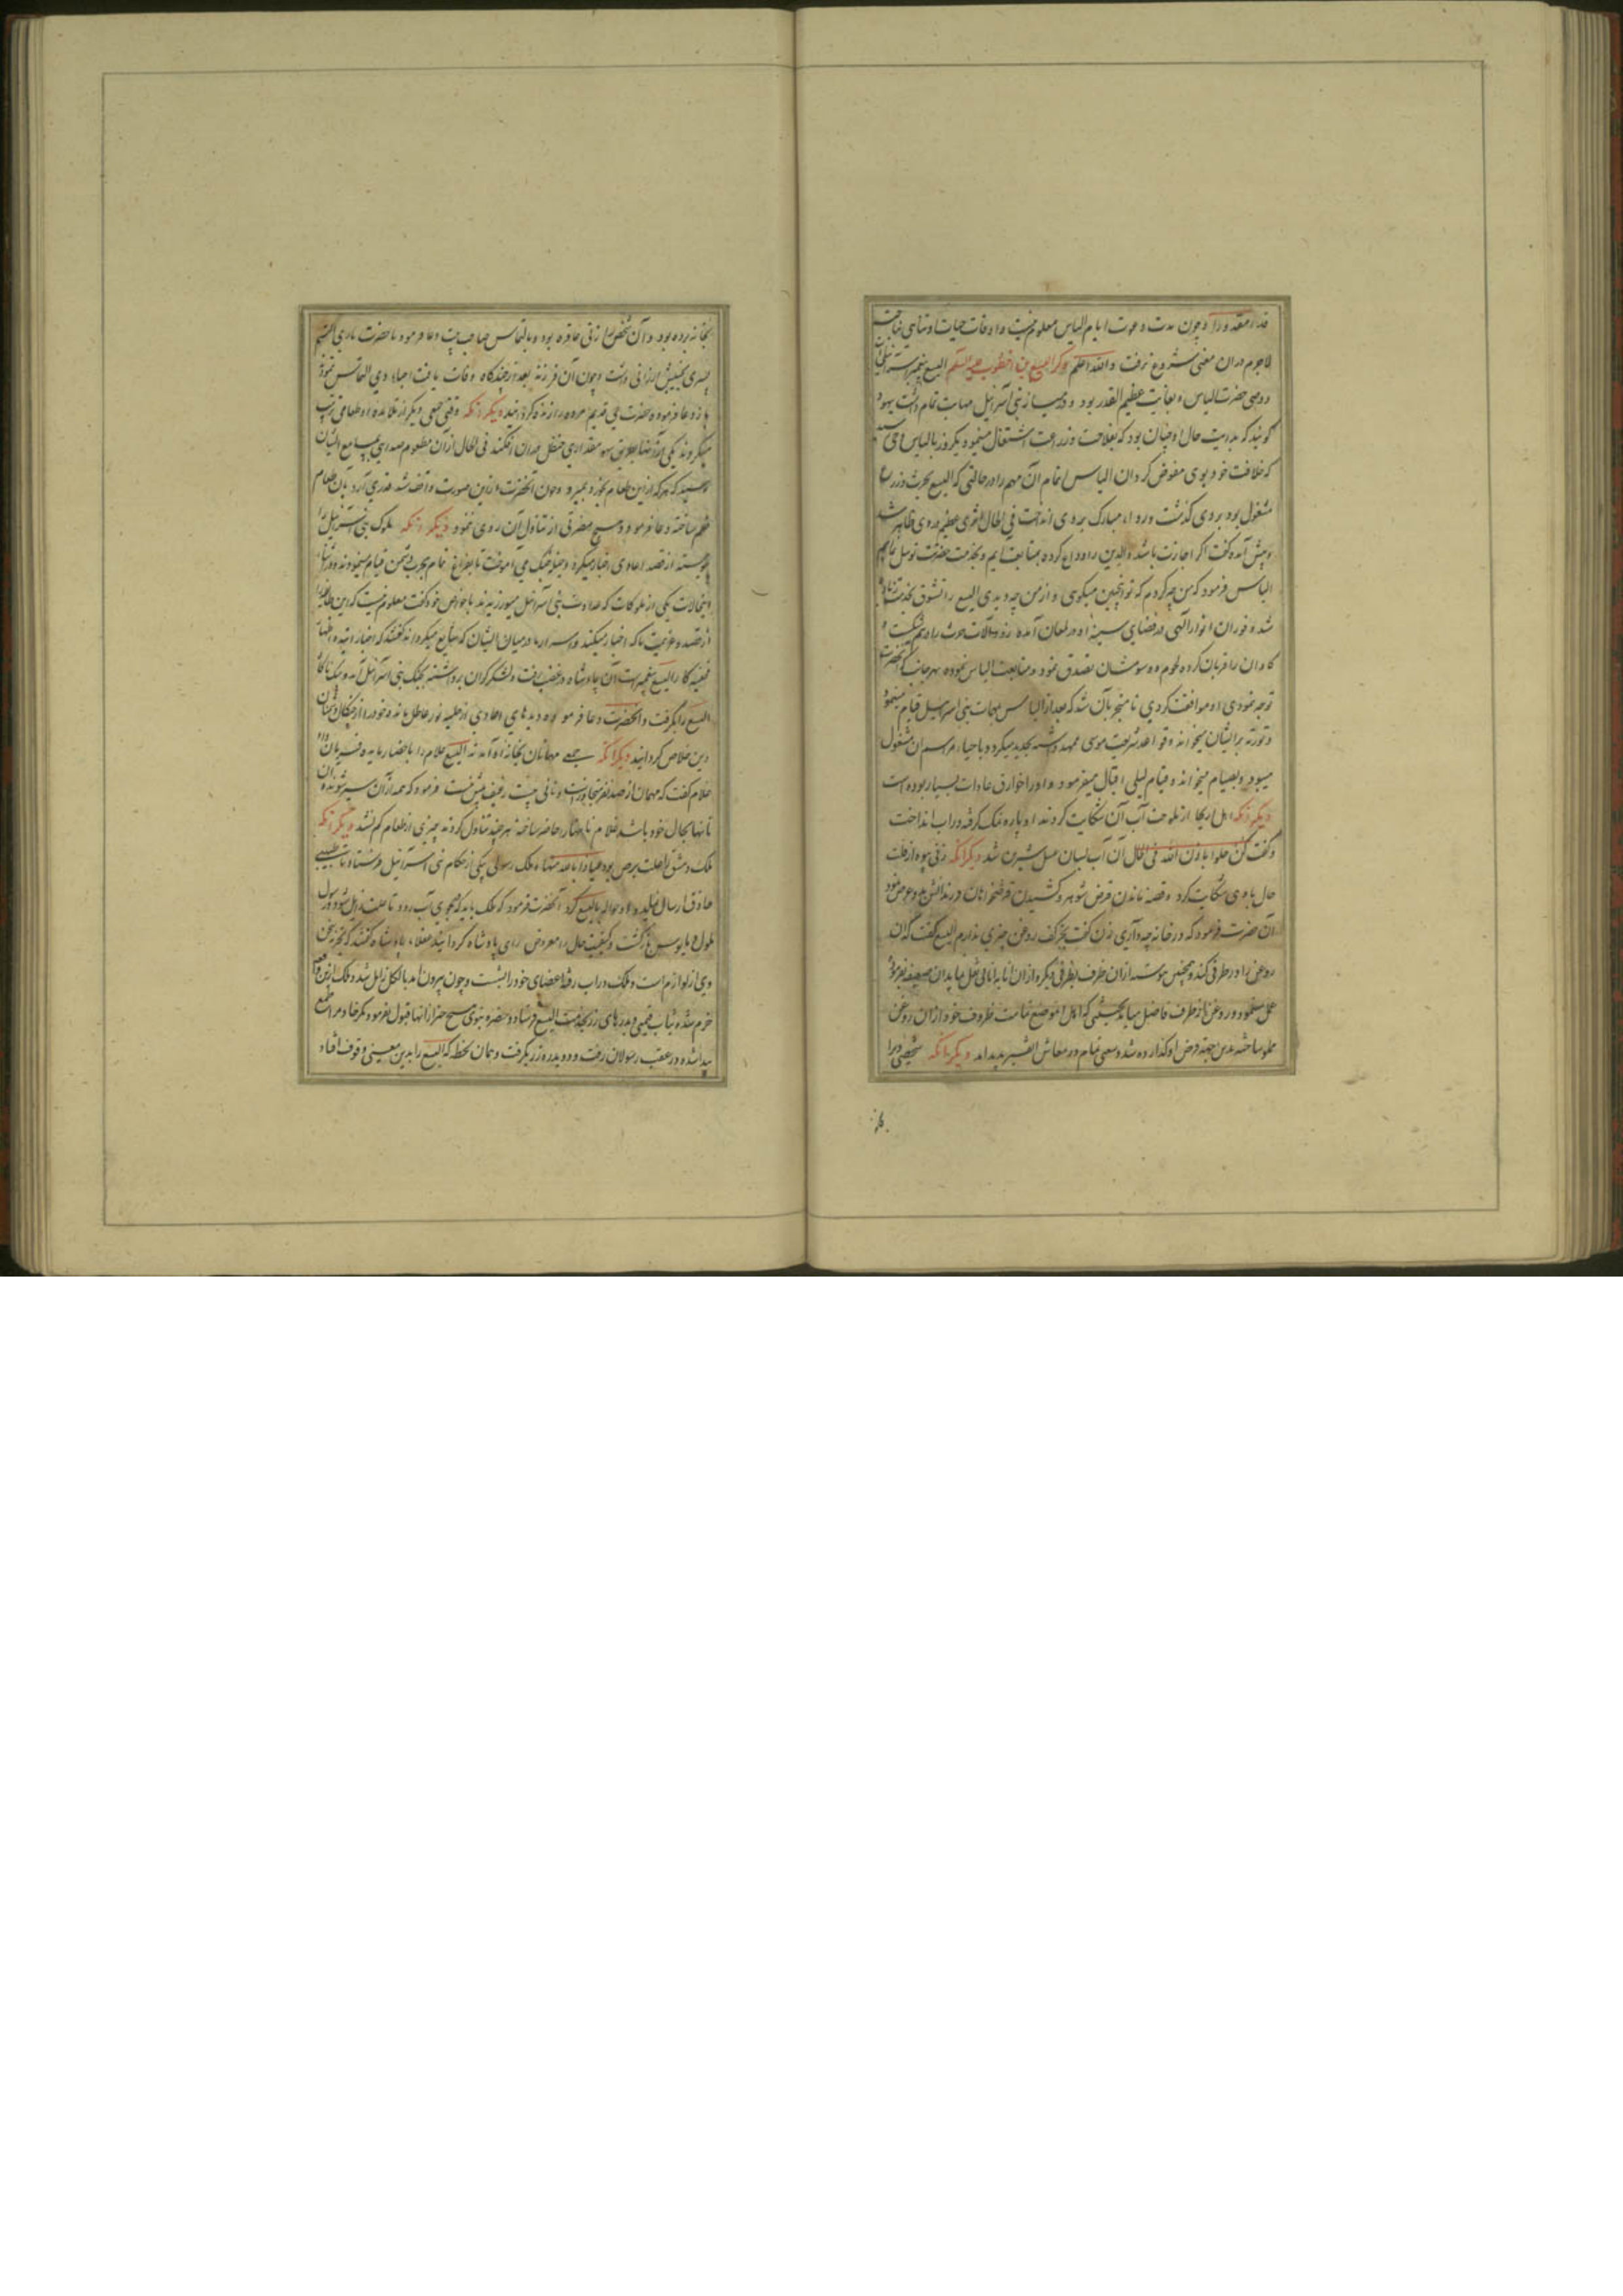 قدرا مقدورا و چون مدت دعوت ایام الیاس معلوم نیست و اوقات حیات او متناهی
لاجرم در آن معنی شروع نرفت والله اعلم ذکر الیسع بن اخطوب علیه السلم الیسع پیغمبر
ووصی حضرت الیاس و بغایت عظیم القدر بود و بنی اسرائیل مهابت تمام داشت
گویند که بدایت حال او چنان بود که بفلاحت و زراعت اشتغال مینمود یکروز بالیاس وحی
که خلافت خود بوی مفوض کردان الیاس اتمام آن مهم را در حالتی که الیسع بحرث و زرع
مشغول بود بروی گذشت و رداء مبارک بروی انداخت فی الحال اثری عظیم در وی ظاهر شد
و پیش آمده گفت اگر اجازت باشد والدین را وداع کرده متابعت نمایم و بخدمت حضرت توسل
الیاس فرمود که من چه کردم که تو اینچنین میکوی و از من چه دیدی الیسع را تشوق
شده فوران انوار الهی در فضای سینه او در لمعان آمده و آلات حرث را درهم شکست و
کاوان را قربان کرده لحوم بدرویشان تصدق نمود و متابعت الیاس نموده بهر جانب که آنحضرت
توجه نمودی او موافقت کردی تا منجر بآن شد که بعد از الیاس بمهمات بنی اسرائیل قیام مینمود
و توریة بر ایشان میخواند و قواعد شریعت موسی ممهد و تجدید میکرد و باحیاء مراسم آن مشغول
میبود و بصیام میخواند و قیام لیلی اقبال میفرمود و او را خوارق عادات بسیار بوده است
دیگر آنکه اهل اریحا از ملوحت آب آن شکایت کردند او پاره نمک گرفته در آب انداخت
و گفت کن حلوا باذن الله فی الحال آن آب بسان عسل شیرین شد دیگر آنکه زنی بیوه از قلت
حال با وی شکایت کرد و قصه ماندن قرض شوهر و کشیدن قرضخواهان فرزندانش را عرض نمود
آن حضرت فرمود که در خانه چه داری زن گفت بجز کف روغن چیزی ندارم الیسع گفت که آن
روغن را در ظرفی کند و همچنین پیوسته از آن ظرف بظرفی دیگر و از آن انا به انائی نقل نماید آن ضعیفه بفرموده
عمل مینمود و روغن از ظرف فاضل میامد بحیثیتی که اهل آن موضع تمامت ظروف خود از آن روغن
مملو ساخته بدین جهة قرض او گذارده شد و سعتی تمام در معاش ایشان پدید آمد دیگر آنکه شخصی ویرا
بخانه
بخانه برده بود و آن شخص را زنی عاقره بود و بالتماس صاحب بیت دعا فرمود تا حضرت باری
پسری بخشیش ارزانی داشت و چون آن فرزند بعد از چندگاه وفات یافت احیاء وی التماس نمود
باز دعا فرموده حضرت حی قدیم مرده را زنده کردانید دیگر آنکه وقتی جمعی دیگر از تلامده او طعامی ترتیب
میکردند یکی از آنها بطریق سهو مقداری حنظل در آن افکند فی الحال از آن مطعوم صدایی بمسامع ایشان
رسید که هر که از این طعام بخورد بمیرد و چون آنحضرت از این صورت واقف شد قدری آرد بآن طعام
ضم ساخته دعا فرمود و هیچ مضرتی از تناول آن روی ننمود دیگر آنکه ملوک بنی اسرائیل را
پیوسته از قصد اعادی اخبار میکرد و حیل جنگ می آموخت تا بفراغ تمام بحرب دشمن قیام مینمودند
اینحالات یکی از ملوکات که عداوت بنی اسرائیل میورزیدند با خواص خود گفت معلوم نیست که این
از قصد و عزیمت ما که اخبار میکند و اسرار ما در میان ایشان که شایع میکرداند گفتند که
قضیه کار الیسع پیغمبر است آن پادشاه در غضب رفت و لشکر کران برداشته بجنگ بنی اسرائیل آمد
الیسع را بگرفت و آنحضرت دعا فرمود تا دیدهای اعادی از حلیه نور عاطل مانده خود را از چنگال دشمنان
دین خلاص گردانید دیگر آنکه جمعی مهمانان بخانه او آمدند الیسع غلام را باحضار مایده فرمان داد
غلام گفت که مهمان از صد نفر متجاوز است و نانی بیست رغیف بیش نیست فرمود که همه از آن سیر شوند و
نانها بحال خود باشد غلام نانها را حاضر ساخته هر چند تناول کردند چیزی از طعام کم نشد دیگر آنکه
ملک دمشق را علت برص بود عیاذا بالله منها و ملک رسولی بیکی از حکام بنی اسرائیل فرستاد تا طبیبی
حاذق ارسال نماید و او حواله بالیسع کرد آنحضرت فرمود که ملک باید که بجوی آب رود تا علت زایل شود رسول
ملول و مایوس بازگشت و کیفیت حال را معروض رای پادشاه گردانید عقلاء پادشاه گفتند که تجربه سخن
وی از لوازم است و ملک در آب رفته اعضای خود را بشست و چون بیرون آمد بالکل زایل شد و ملک از این
خرم شده ثیاب قیمتی و بدرهای زر بخدمت الیسع فرستاد و حضرت نبوی هیچ جز از آنها قبول نفرمود مگر خادم را طمع
پیدا شده در عقب رسولان رفت و دو بدره زر بگرفت و همان لحظه که الیسع را بدین معنی وقوف افتاد